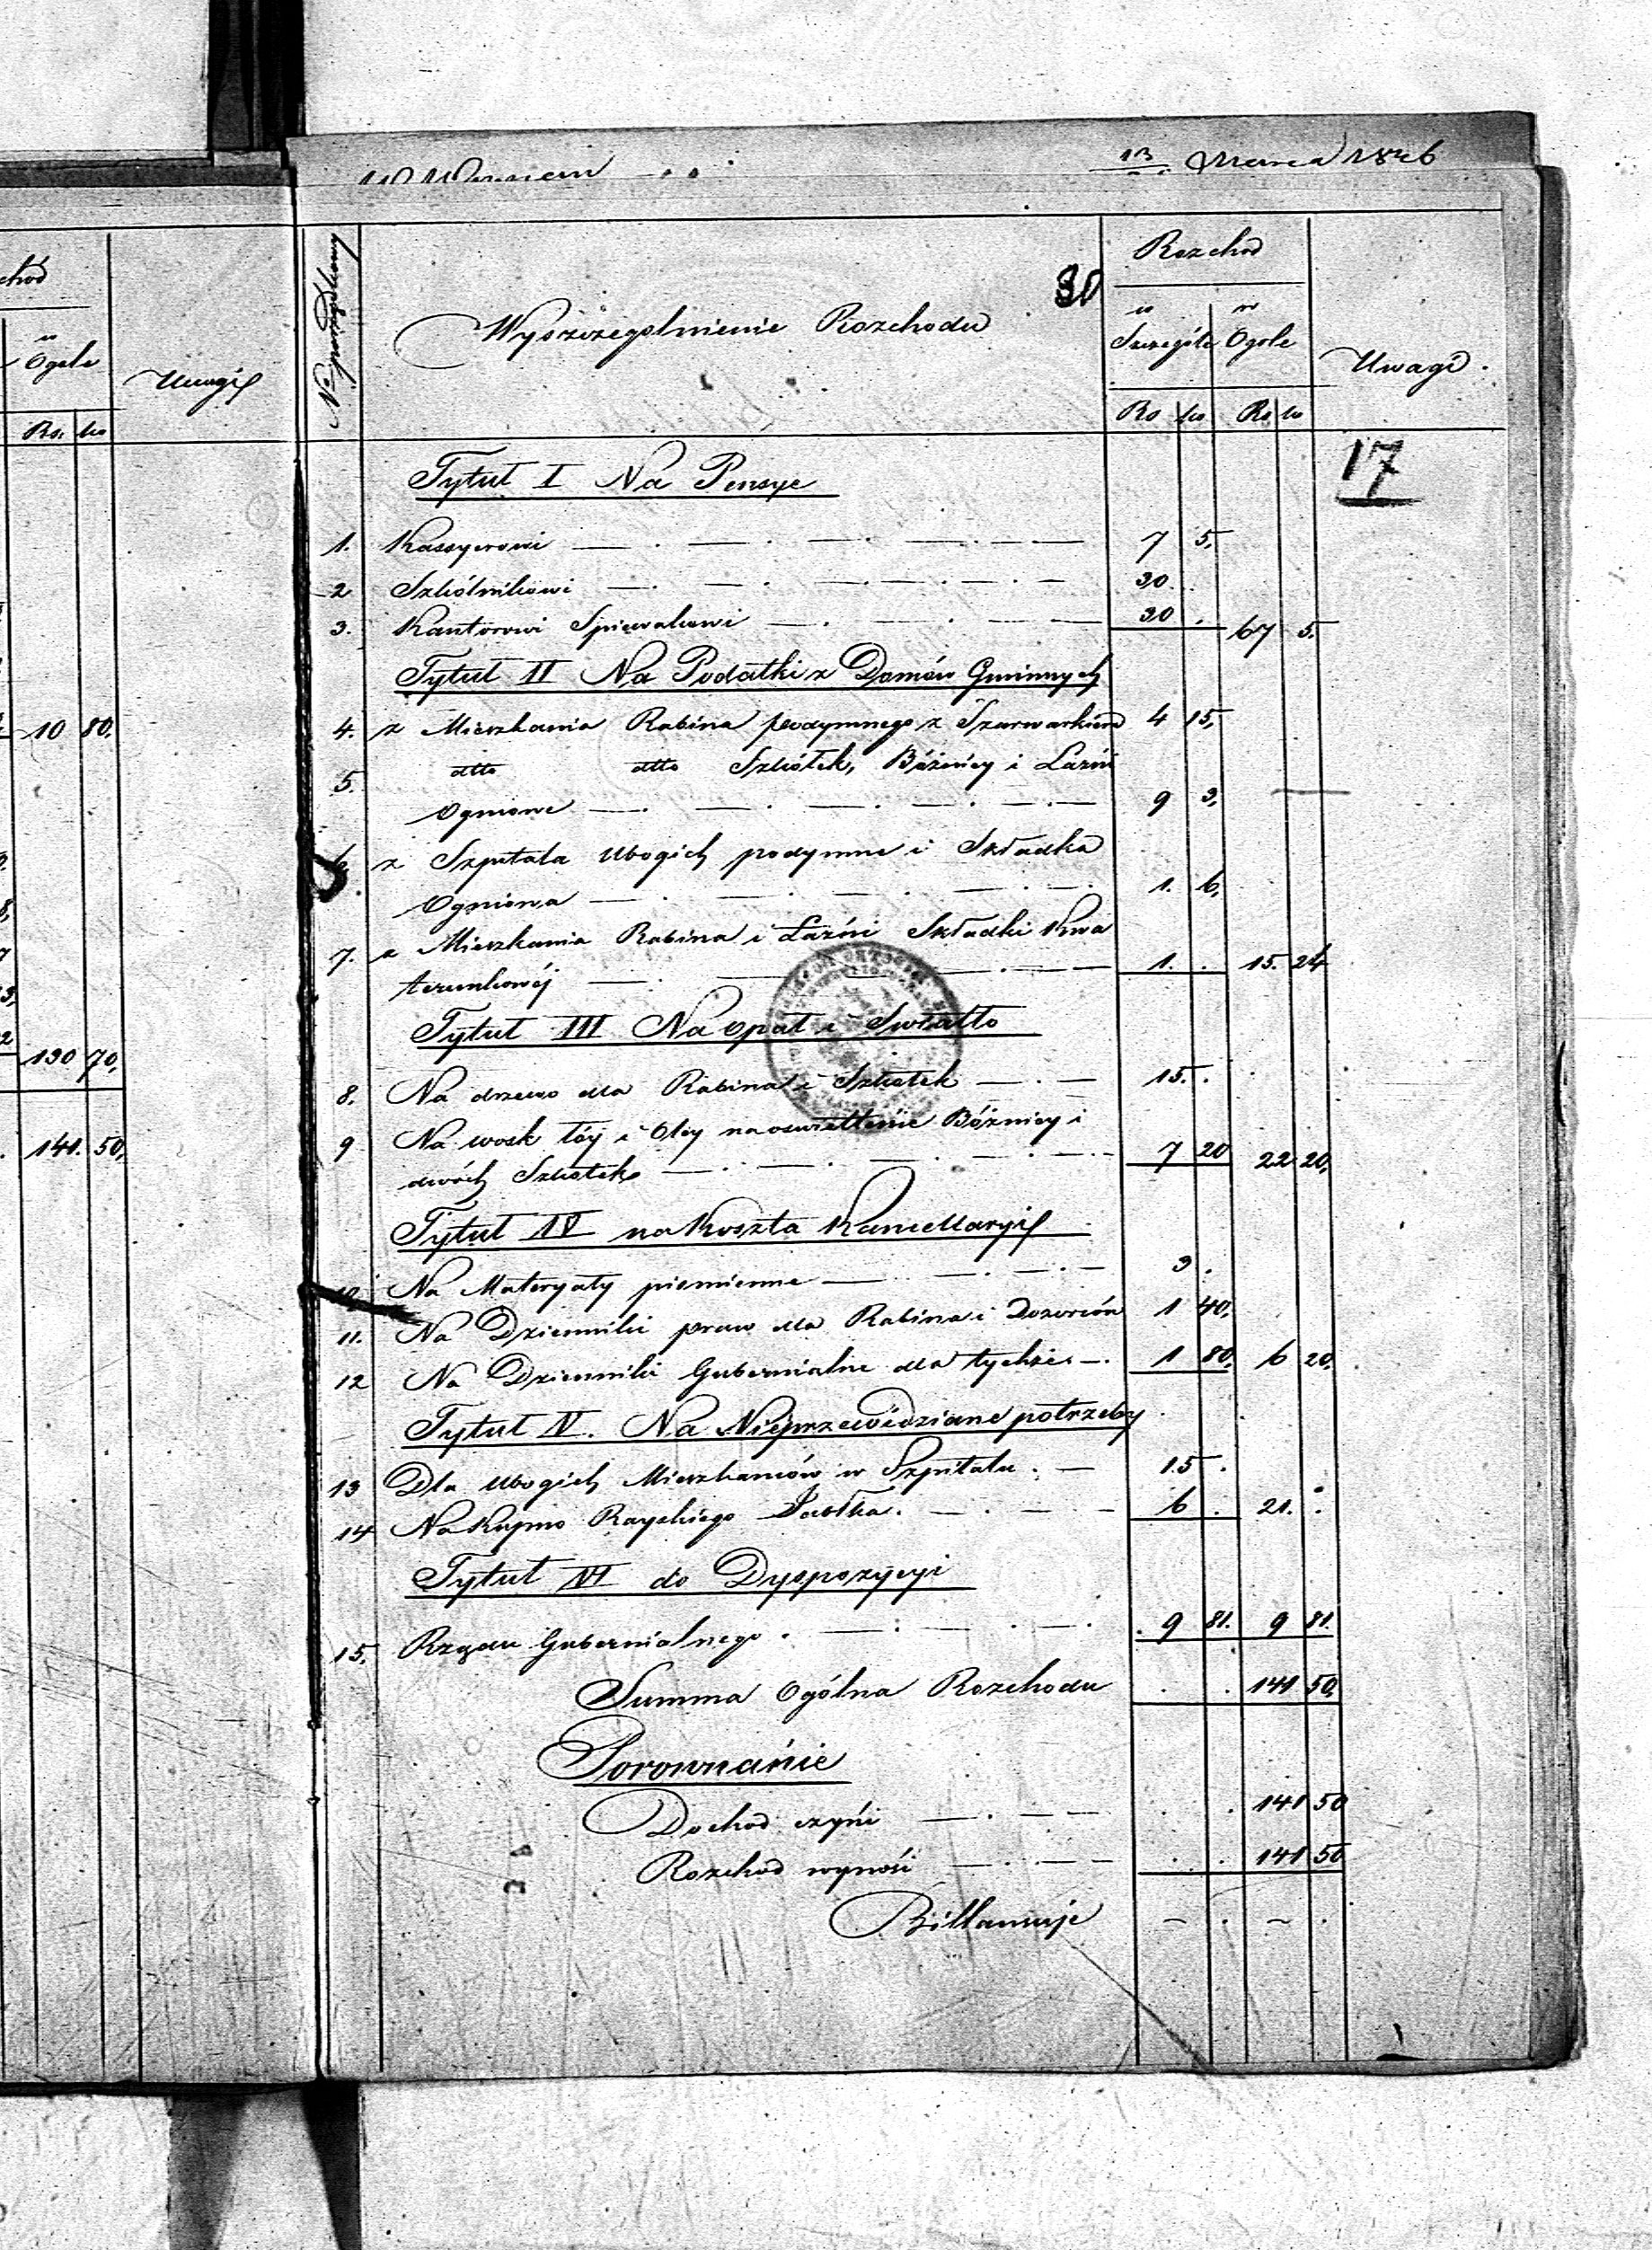 13 Marca 1846
chód
w Ogole
Uwagi
Rs. ko
10 80.
130 70,
141. 50,
No porządkowy
Wyszczegolnienie Rozchodu
30
Rozchod
w Szczególe
w Ogole
Uwagi.
Rs ko Rs ko
17
Tytuł I Na Pensye
1. Kassyerowi 7 5,
2 Szkólnikowi 30
3. Kantorowi Spiewakowi 30 . 67 5.
Tytuł II Na Podatki z Domów Gminnych
4. z Mieszkania Rabina podymnego z Szarwarkiem 4 15,
5. dtto dtto Szkółek, Bóżnicy i Łaźni
Ogniowe 9 3,
6. z Szpitala Ubogich podymne i Składka
Ogniowa 1. 6,
7. z Mieszkania Rabina i Łaźni Składki Kwa
terunkowéj 1. . 15. 24
Tytuł III Na opał i Swiatło
8. Na drzewo dla Rabina i Szkołek 15. .
9 Na wosk łóy i Oley na oswietlenie Bóżnicy i
dwóch Szkołek 7 20 22 20,
Tytuł IV na Koszta Kancellaryi
10 Na Materyały piśmienne 3 .
11. Na Dzienniki praw dla Rabina i Dozorców 1 40,
12 Na Dzienniki Gubernialne dla tychże 1 80, 6 20,
Tytuł V. Na Nieprzewidziane potrzeby
13 Dla Ubogich Mieszkańców w Szpitalu. 15 .
14 Na Kupno Rayskiego Jabłka. 6 . 21. .
Tytuł VI do Dyspozycyi
15. Rządu Gubernialnego. 9 81. 9 81.
Summa Ogólna Rozchodu . . 141 50,
Porownanie
Dochod czyni . . 141 50
Rozchod wynosi . . 141 50
Billansuje – . – .